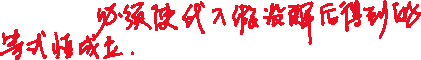 必须使代入假设解后得到的
等式恒成立.